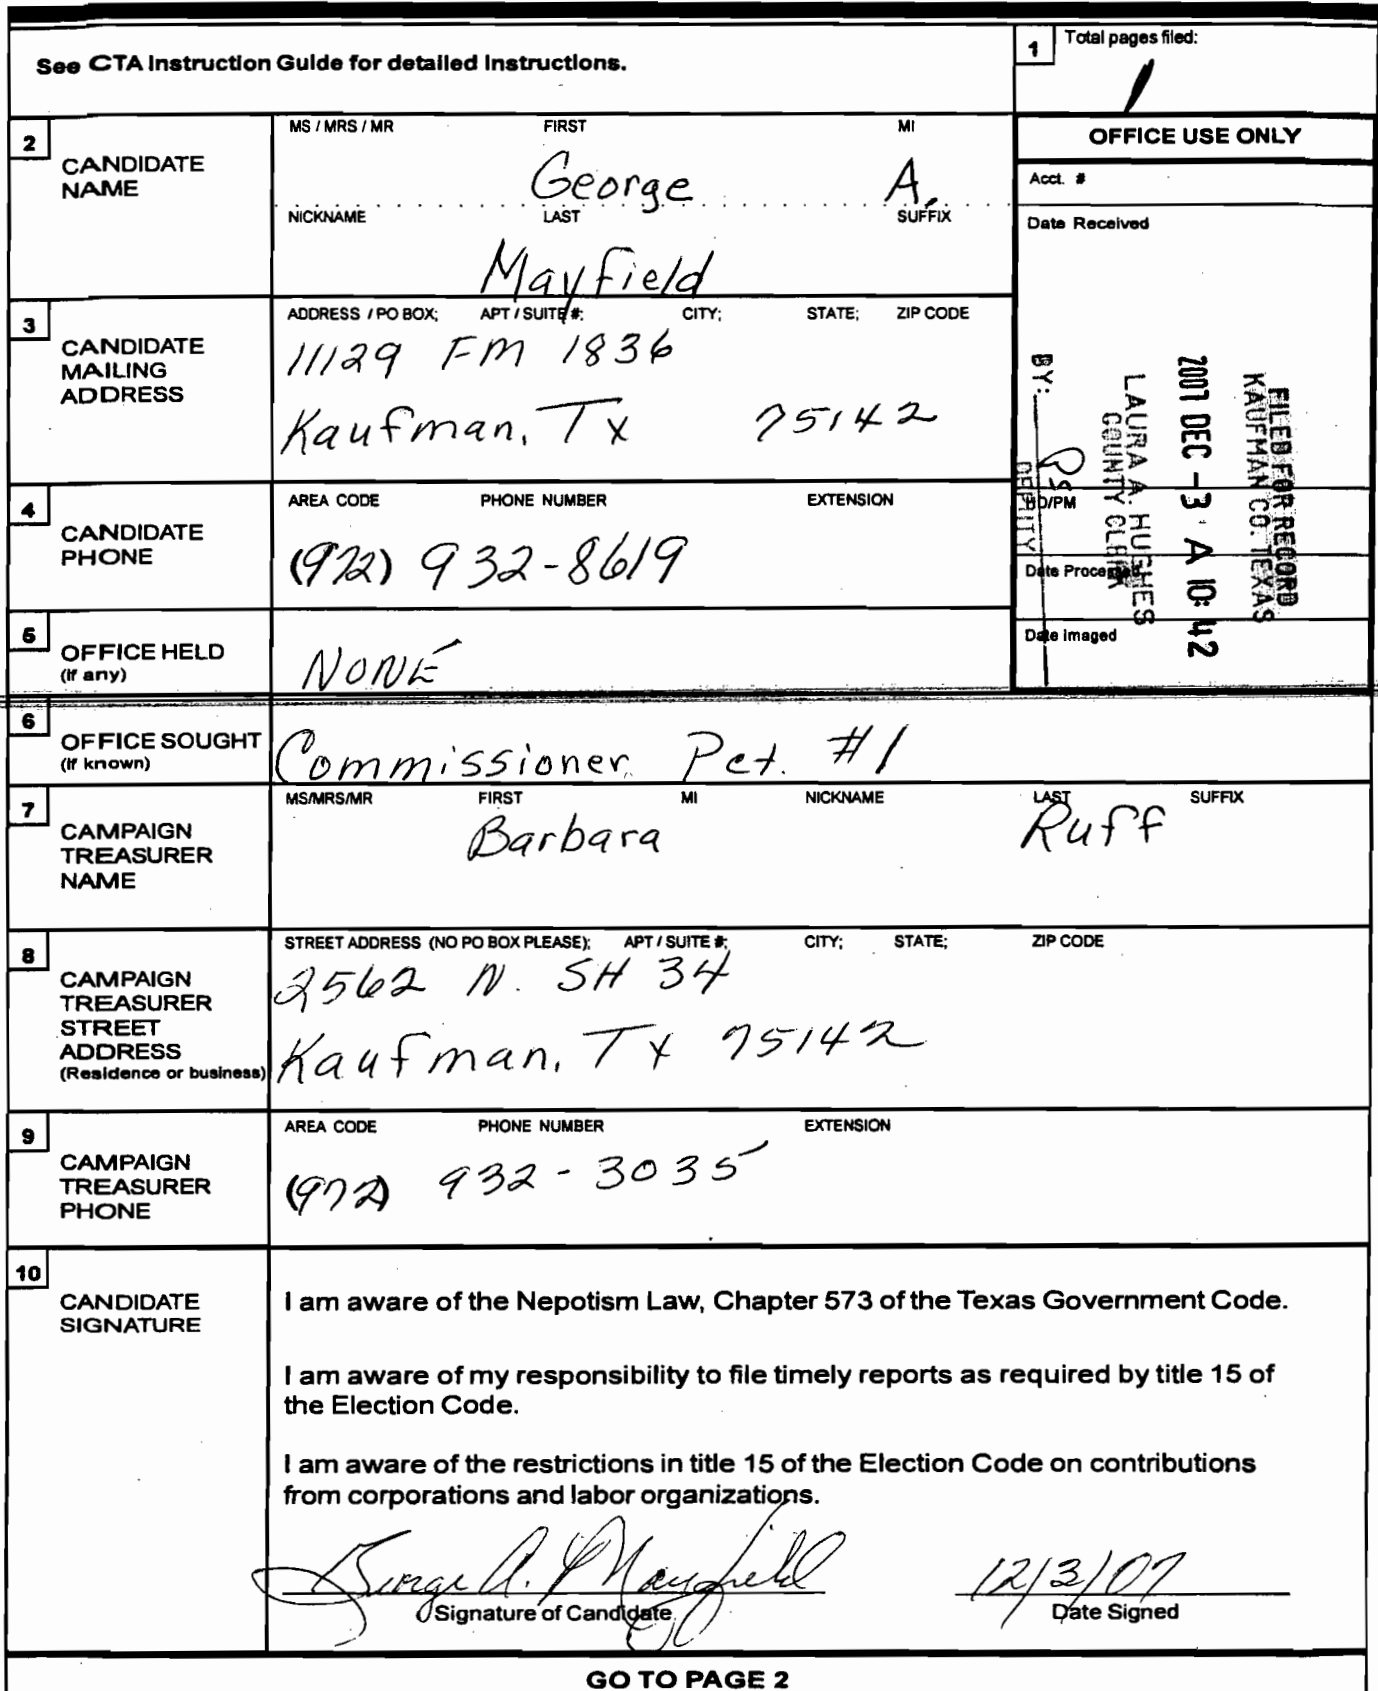 See CTA Instruction Guide for detailed instructions.
1 Total pages filed:
1
2 CANDIDATE NAME
MS / MRS / MR FIRST MI
George A.
NICKNAME LAST SUFFIX
Mayfield
OFFICE USE ONLY
Acct. #
Date Received
FILED FOR RECORD
KAUFMAN CO. TEXAS
2007 DEC -3 A 10:42
LAURA A. HUGHES
COUNTY CLERK
BY:
DEPUTY
Date Processed
Date Imaged
3 CANDIDATE MAILING ADDRESS
ADDRESS / PO BOX; APT / SUITE #; CITY; STATE; ZIP CODE
11129 FM 1836
Kaufman, Tx 75142
4 CANDIDATE PHONE
AREA CODE PHONE NUMBER EXTENSION
(972) 932-8619
5 OFFICE HELD (if any)
NONE
6 OFFICE SOUGHT (if known)
Commissioner Pct. #1
7 CAMPAIGN TREASURER NAME
MS/MRS/MR FIRST MI NICKNAME LAST SUFFIX
Barbara Ruff
8 CAMPAIGN TREASURER STREET ADDRESS (Residence or business)
STREET ADDRESS (NO PO BOX PLEASE); APT / SUITE #; CITY; STATE; ZIP CODE
2562 N. SH 34
Kaufman, Tx 75142
9 CAMPAIGN TREASURER PHONE
AREA CODE PHONE NUMBER EXTENSION
(972) 932-3035
10 CANDIDATE SIGNATURE
I am aware of the Nepotism Law, Chapter 573 of the Texas Government Code.
I am aware of my responsibility to file timely reports as required by title 15 of
the Election Code.
I am aware of the restrictions in title 15 of the Election Code on contributions
from corporations and labor organizations.
George A. Mayfield 12/3/07
Signature of Candidate Date Signed
GO TO PAGE 2